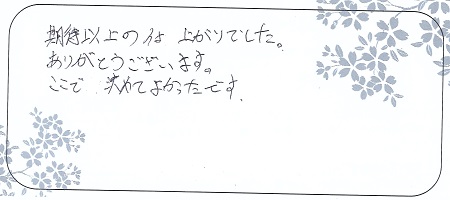 期待以上の仕上がりでした。
ありがとうございます。
ここで決めてよかったです。